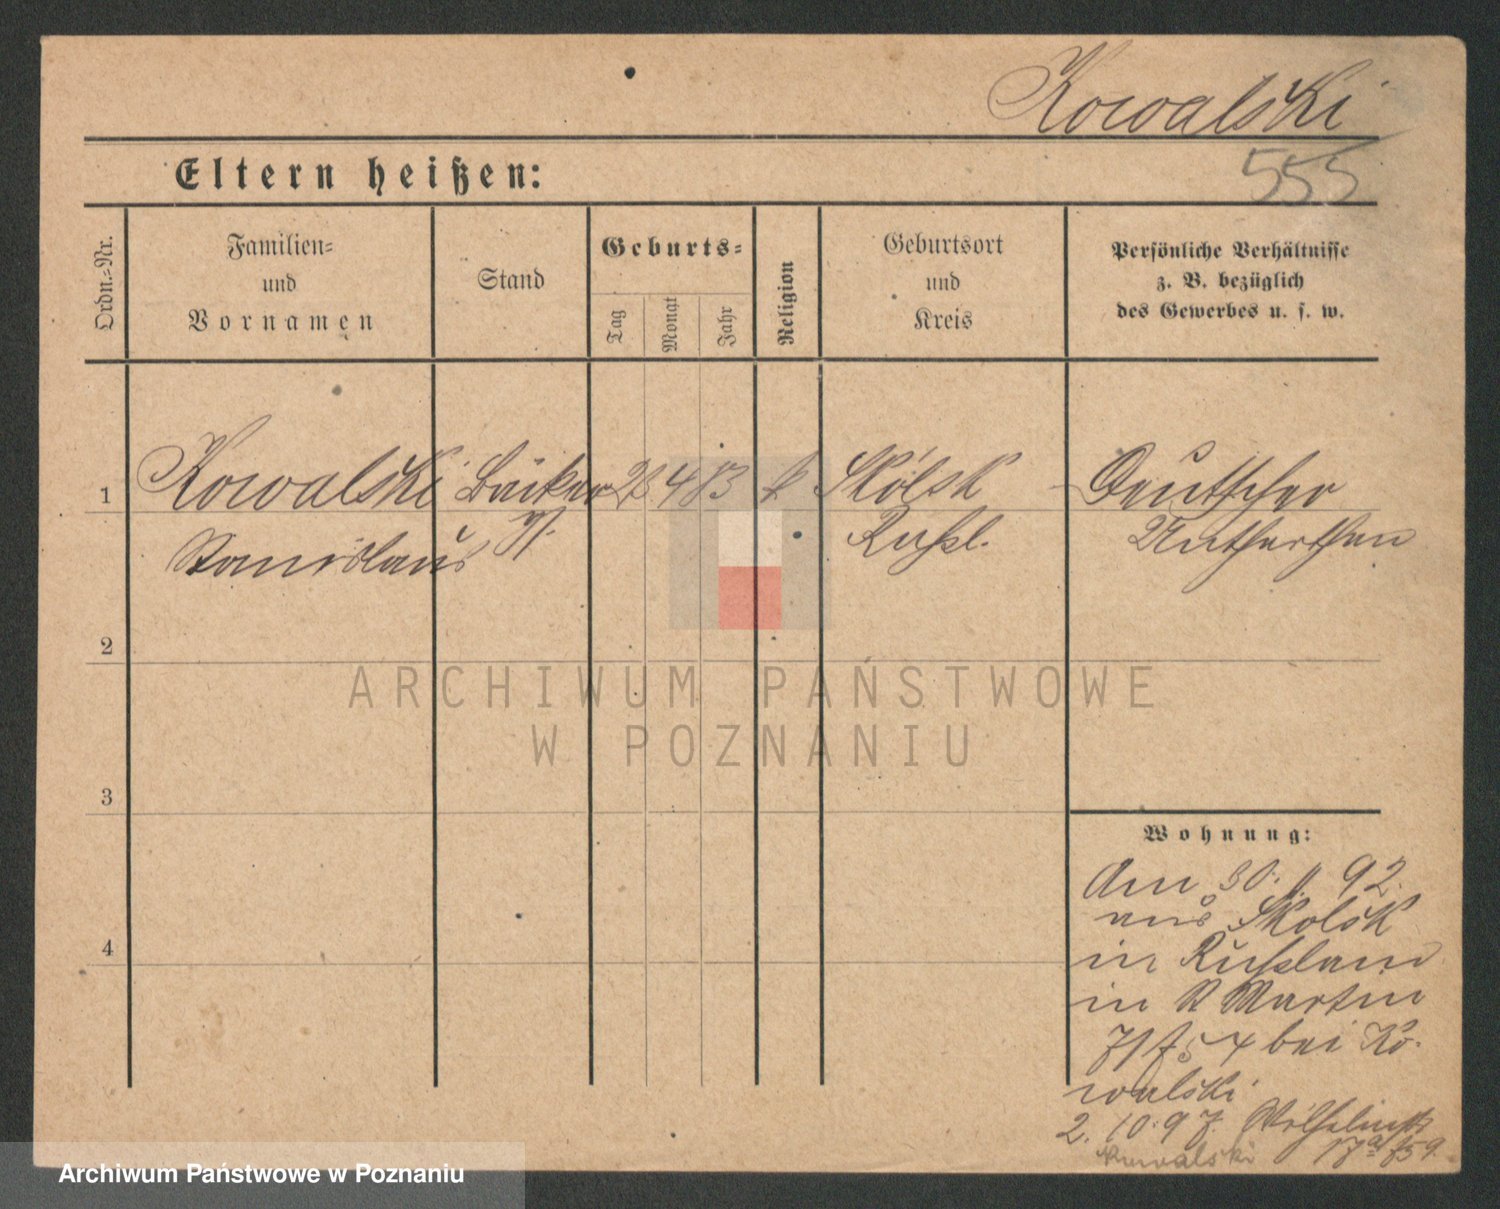 Kowalski
Eltern heißen:
555
Ordn.=Nr.
Familien=
und
Vornamen
Stand
Geburts=
Tag
Monat
Jahr
Religion
Geburtsort
und
Kreis
Persönliche Verhältnisse
z. B. bezüglich
des Gewerbes u. s. w.
1
Kowalski Bäcker 4 k Skólsk Deutscher
Stanislaus Rußl.
2
ARCHIWUM PAŃSTWOWE
W POZNANIU
3
Wohnung:
Am 30. 92.
aus Skolsk
4
in Rußland
in St Martin
bei Ko-
walski
2. 10. 97. Wilhelmstr
Kowalski 17a
Archiwum Państwowe w Poznaniu